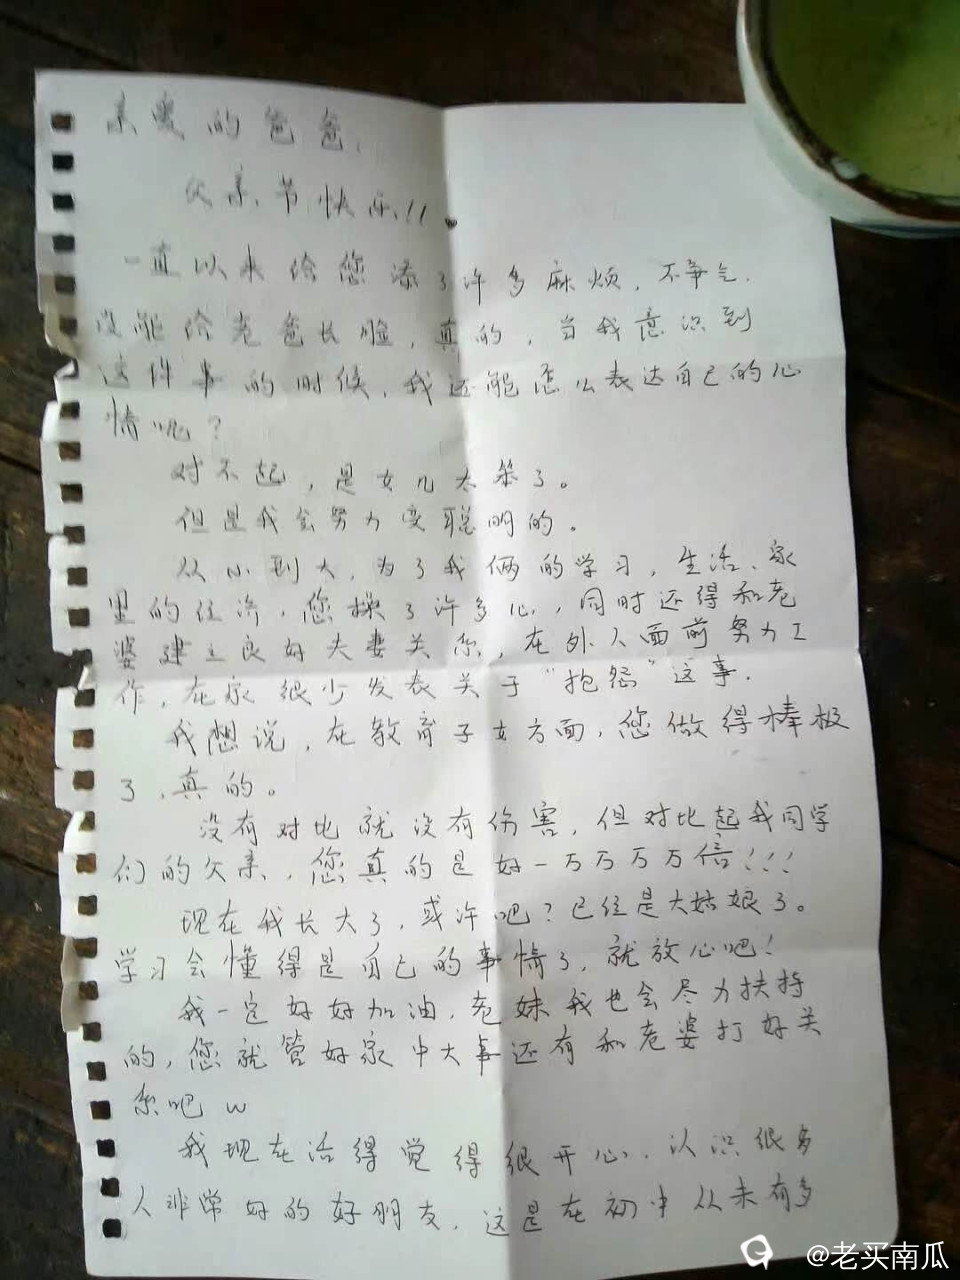 亲爱的爸爸，
父亲节快乐!!
一直以来给您添了许多麻烦，不争气.
没能给老爸长脸，真的，当我意识到
这件事的时候，我还能怎么表达自己的心
情呢？
对不起，是女儿太笨了。
但是我会努力变聪明的。
从小到大，为了我俩的学习，生活、家
里的经济，您操了许多心，同时还得和老
婆建立良好夫妻关系，在外人面前努力工
作，在家很少发表关于“抱怨”这事.
我想说，在教育子女方面，您做得棒极
了，真的。
没有对比就没有伤害，但对比起我同学
们的父亲，您真的是好一万万万万倍!!!
现在我长大了，或许吧？已经是大姑娘了。
学习会懂得是自己的事情了，就放心吧！
我一定好好加油，老妹我也会尽力扶持
的，您就管好家中大事还有和老婆打好关
系吧 w
我现在活得觉得很开心，认识很多
人非常好的好朋友，这是在初中从未有多
@老买南瓜